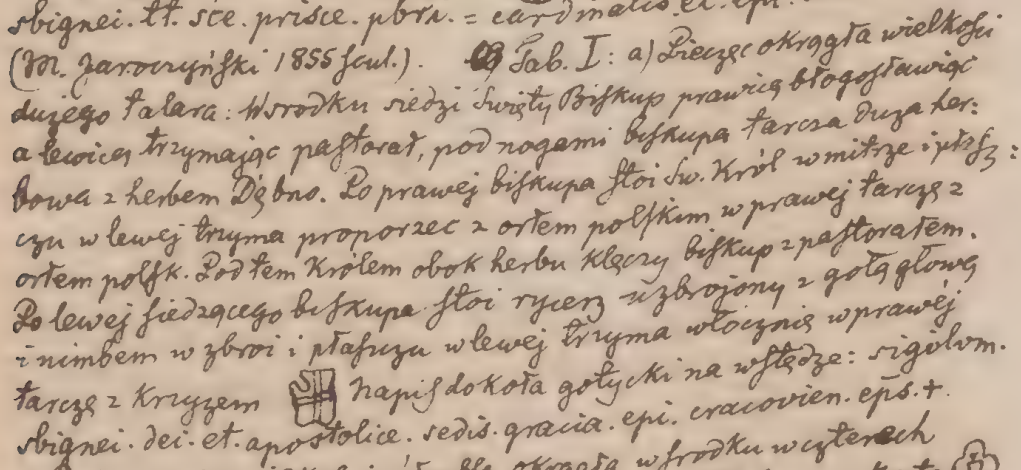 sbignei. tt. sce. prisce. pbri. = cardinalis. et. epi.
(M. Jaroczyński 1855 sculp.). Tab. I: a) Pieczęć okrągła wielkości
dużego talara: Wśrodku siedzi Święty Biskup prawicą błogosławiąc
a lewicą trzymając pastorał, pod nogami biskupa tarcza duża her:
bowa z herbem Dębno. Po prawej biskupa stoi Św. Król w mitrze i płasz:
czu w lewej trzyma proporzec z orłem polskim w prawej tarczę z
orłem polsk. Pod tem Królem obok herbu klęczy biskup z pastorałem.
Po lewej siedzącego biskupa stoi rycerz uzbrojony z gołą głową
i nimbem w zbroi i płaszczu w lewej trzyma włócznię w prawej
tarczę z krzyżem napis dokoła gotycki na wstędze: sigilvm.
sbignei. dei. et. apostolice. sedis. gracia. epi. cracovien. eps. +
okrągła wśrodku w czterech